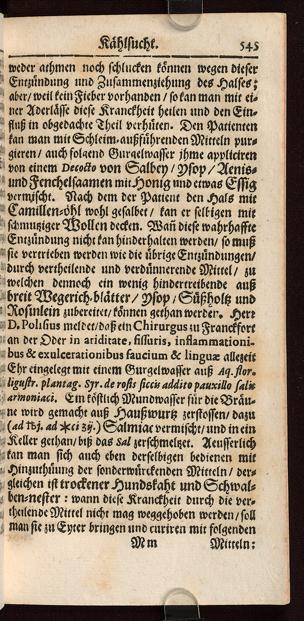 Kählsucht. 545
weder athmen noch schlucken können wegen dieser
Entzündung und Zusammenziehung des Halses;
aber/ weil kein Fieber vorhanden/ so kan man mit ei-
ner Aderlässe diese Kranckheit heilen und den Ein-
fluß in obgedachte Theil verhüten. Den Patienten
kan man mit Schleim-außführenden Mitteln pur-
gieren/ auch folgend Gurgelwasser jhme appliciren
von einem Decocto von Salbey/ Ysop/ Aenis-
und Fenchelsaamen mit Honig und etwas Essig
vermischt. Nach dem der Patient den Hals mit
Camillen-öhl wohl gesalbet/ kan er selbigen mit
schmutziger Wollen decken. Wañ diese wahrhaffte
Entzündung nicht kan hinderhalten werden/ so muß
sie vertrieben werden wie die übrige Entzündungen/
durch vertheilende und verdünnerende Mittel/ zu
welchen dennoch ein wenig hindertreibende auß
breit Wegerich-blätter/ Ysop/ Süßholtz und
Rosinlein zubereitet/ können gethan werder. Herr
D. Polisius meldet/ daß ein Chirurgus zu Franckfort
an der Oder in ariditate, fissuris, inflammationi-
bus & exulcerationibus faucium & linguæ allezeit
Ehr eingelegt mit einem Gurgelwasser auß Aq. flor.
ligustr. plantag. Syr. de rosis siccis addito pauxillo salis
armoniaci. Ein köstlich Mundwasser für die Bräu-
ne wird gemacht auß Haußwurtz zerstossen/ dazu
(ad ℔j. ad ✶ci ʒij.) Salmiac vermischt/ und in ein
Keller gethan/ biß das Sal zerschmeltzet. Aeusserlich
kan man sich auch eben derselbigen bedienen mit
Hinzuthüung der sonderwürckenden Mitteln/ der-
gleichen ist trockener Hundskaht und Schwal-
ben-nester: wann diese Kranckheit durch die ver-
theilende Mittel nicht mag weggehoben werden/ soll
man sie zu Eyter bringen und curiren mit folgenden
M m Mitteln: